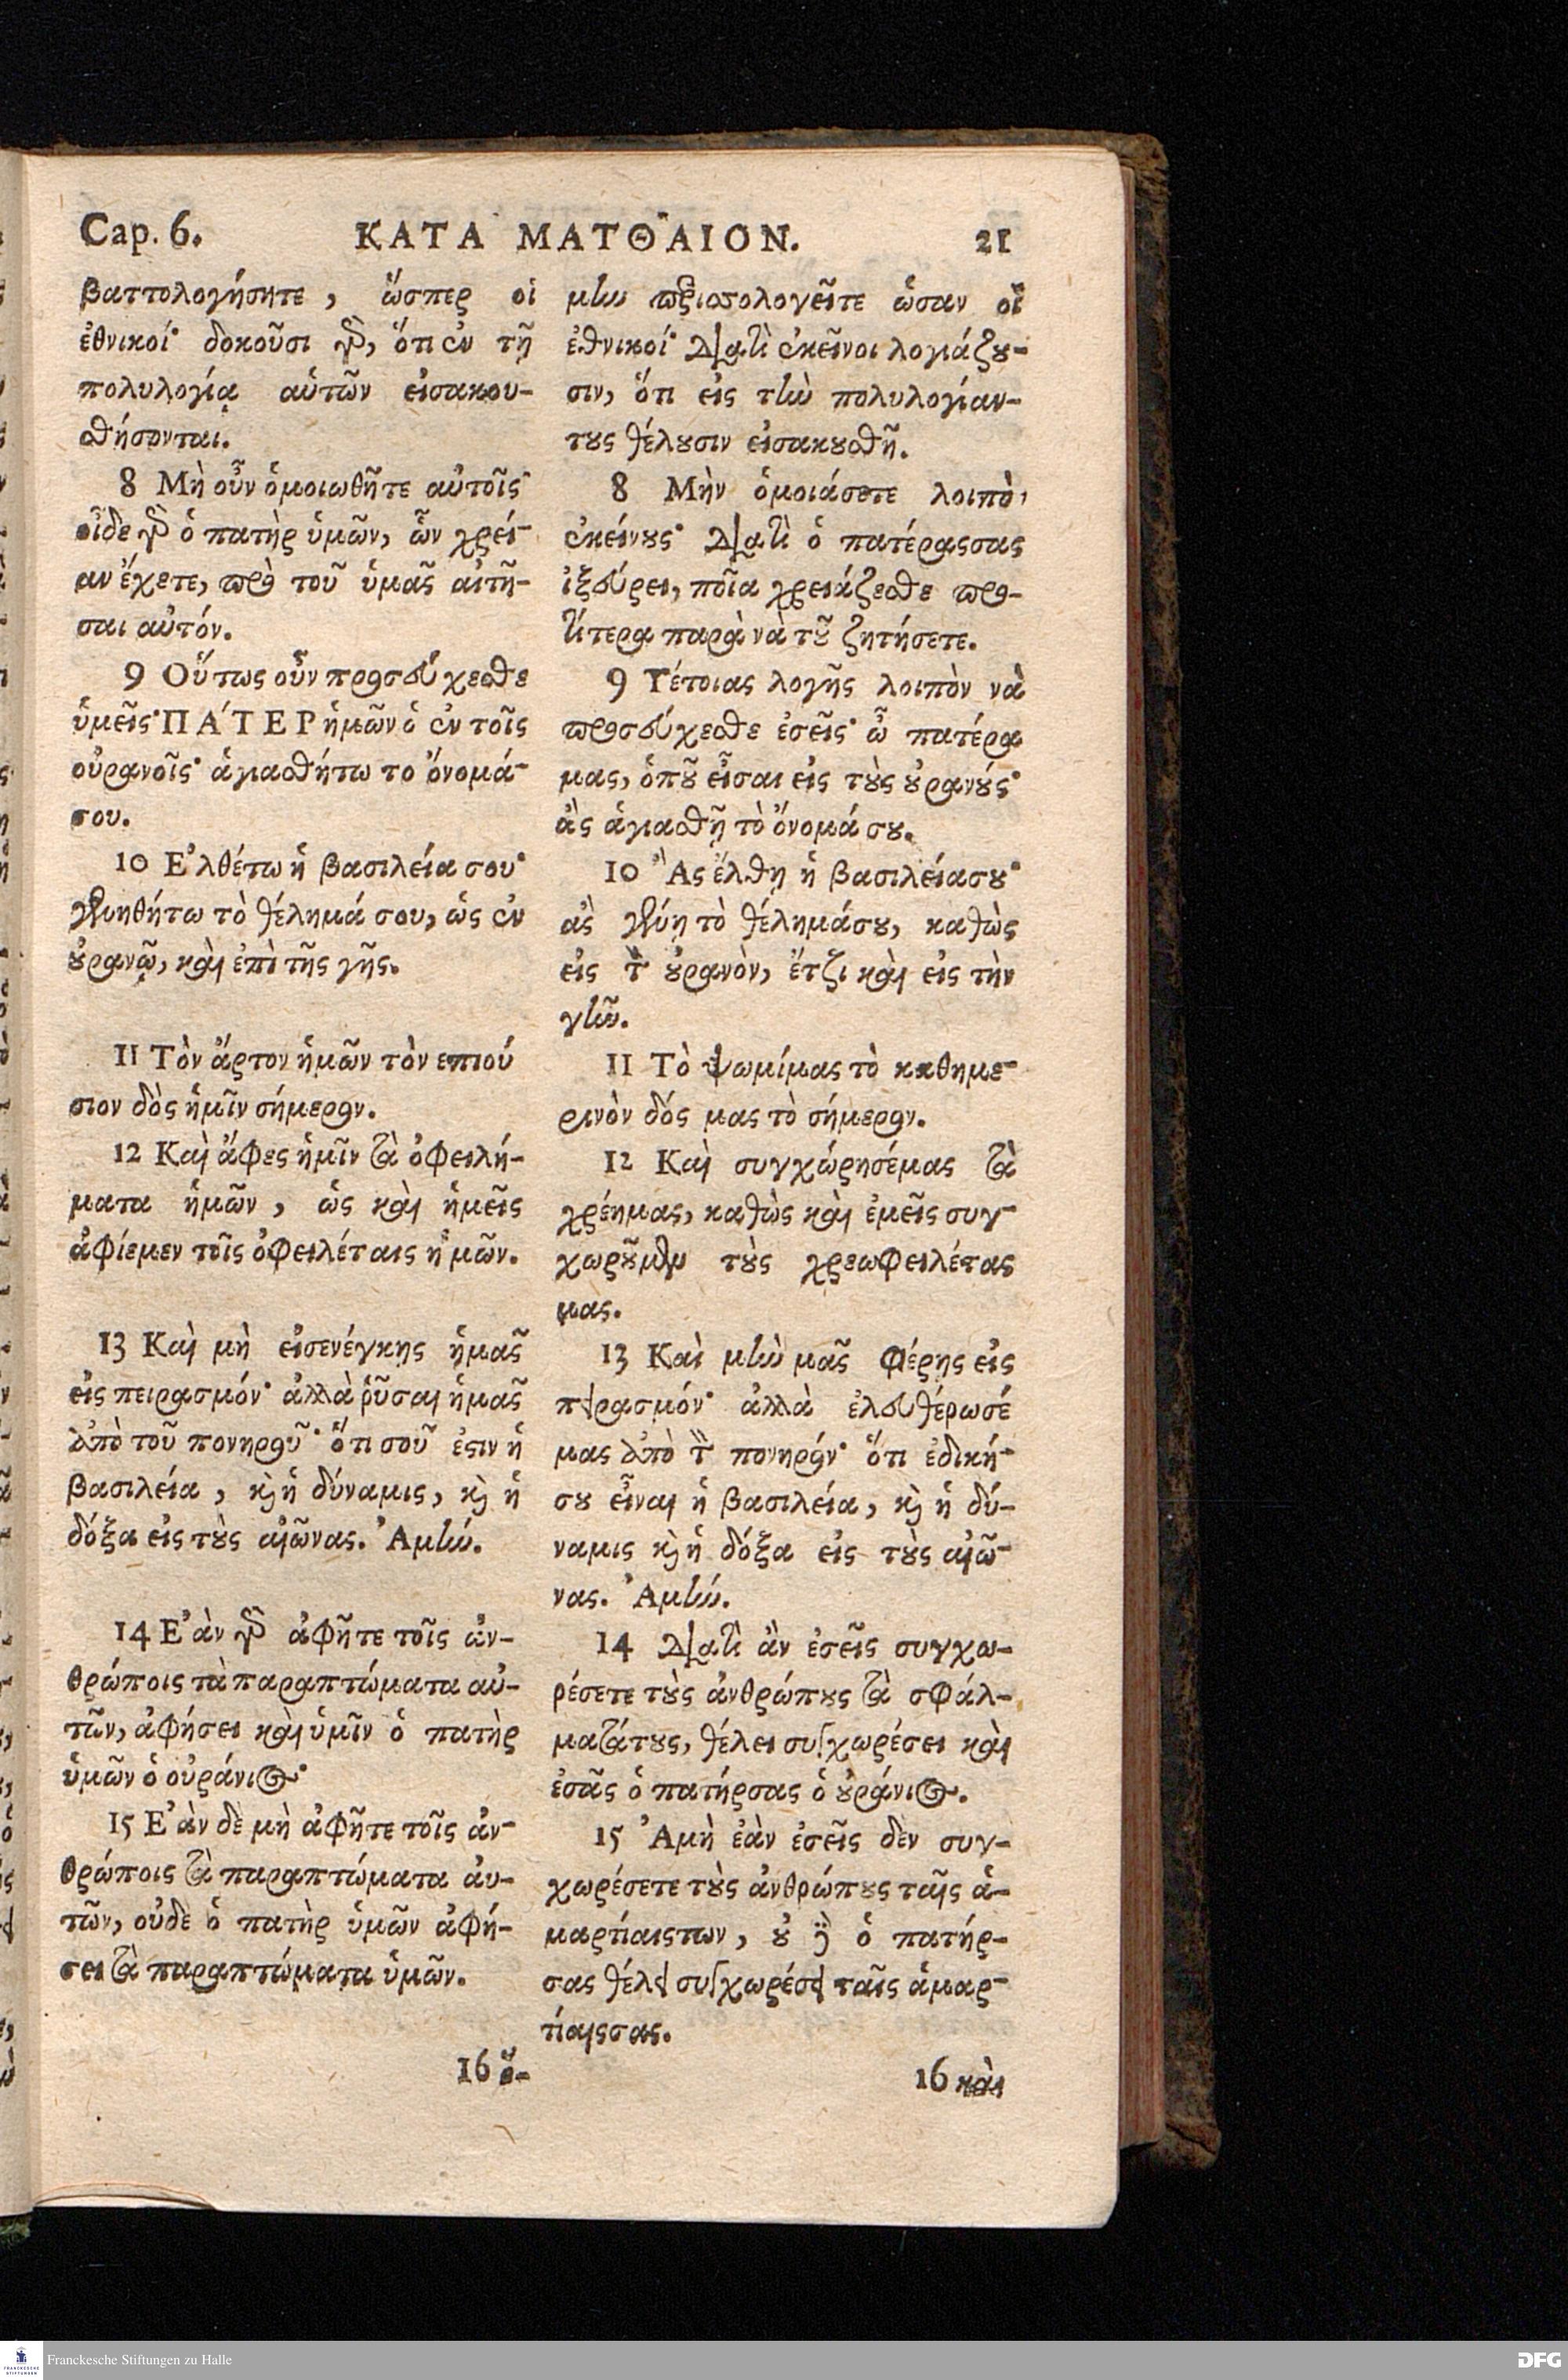 Cap. 6. ΚΑΤΑ ΜΑΤΘΑΙΟΝ. 21
βαττολογήσητε, ὥσπερ οἱ
ἐθνικοί· δοκοῦσι γὸ, ὅτι ἐν τῇ
πολυλογίᾳ αὑτῶν εἰσακου-
σθήσονται.
8 Μὴ οὖν ὁμοιωθῆτε αὐτοῖς·
οἶδε γὸ ὁ πατὴρ ὑμῶν, ὧν χρεί-
αν ἔχετε, πρὸ τοῦ ὑμᾶς αἰτῆ-
σαι αὐτόν.
9 Οὕτως οὖν προσεύχεσθε
ὑμεῖς· ΠΑ´ΤΕΡ ἡμῶν ὁ ἐν τοῖς
οὐρανοῖς· ἁγιασθήτω το ὄνομά
σου.
10 Ε᾿λθέτω ἡ βασιλεία σου·
γενηθήτω τὸ θέλημά σου, ὡς ἐν
ȣ̓ρανῷ, καὶ ἐπὶ τῆς γῆς.
11 Τὸν ἄρτον ἡμῶν τὸν επιού
σιον δὸς ἡμῖν σήμερον.
12 Καὶ ἄφες ἡμῖν τὰ ὀφειλή-
ματα ἡμῶν, ὡς καὶ ἡμεῖς
ἀφίεμεν τοῖς ὀφειλέταις ἡμῶν.
13 Καὶ μὴ εἰσενέγκης ἡμᾶς
εἰς πειρασμόν· ἀλλὰ ῥῦσαι ἡμᾶς
ἀπὸ τοῦ πονηροῦ· ὅτι σοῦ ἐϛιν ἡ
βασιλεία, κ̀ ἡ δύναμις, κ̀ ἡ
δόξα εἰς τȣ̀ς αἰῶνας. Ἀμήν.
14 Ε᾿ὰν γὸ ἀφῆτε τοῖς ἀν-
θρώποις τὰ παραπτώματα αὐ-
τῶν, ἀφήσει καὶ ὑμῖν ὁ πατὴρ
ὑμῶν ὁ οὐράνιος·
15 Ε᾿ὰν δὲ μὴ ἀφῆτε τοῖς ἀν-
θρώποις τὰ παραπτώματα ἀυ-
τῶν, οὐδε ὁ πατὴρ ὑμῶν ἀφή-
σει τὰ παραπτώματα ὑμῶν.
16 ὅ-
μὴν περισσολογεῖτε ὡσαν οἱ
ἐθνικοί· Διατὶ ἐκεῖνοι λογιάζȣ-
σιν, ὅτι εἰς τὴν πολυλογίαν-
τȣς θέλȣσιν εἰσακȣσθῆ.
8 Μὴν ὁμοιάσετε λοιπὸν
ἐκείνȣς· Διατὶ ὁ πατέρασσας
ἰξεύρει, ποῖα χρειάζεσθε προ-
τίτερα παρὰ νὰ τȣ͂ ζητήσετε.
9 Τέτοιας λογῆς λοιπὸν νὰ
προσεύχεσθε ἐσεῖς· ὦ πατέρα
μας, ὁπȣ͂ εἶσαι εἰς τȣ̀ς ȣ̓ρανȣ́ς·
ἂς ἁγιασθῇ τὸ ὄνομά σȣ.
10 Ἂς ἔλθῃ ἡ βασιλείασȣ·
ἂς γενῇ τὸ θέλημάσȣ, καθὼς
εἰς τὸν ȣ̓ρανὸν, ἔτζι καὶ εἰς τὴν
γῆν.
11 Τὸ ψωμίμας τὸ καθημε-
ρινὸν δός μας τὸ σήμερον.
12 Καὶ συγχώρησέμας τὰ
χρέημας, καθὼς καὶ ἐμεῖς συγ-
χωρȣ͂μεν τȣ̀ς χρεωφειλέτας
μας.
13 Καὶ μὴν μᾶς φέρῃς εἰς
πειρασμόν· ἀλλὰ ἐλευθέρωσέ
μας ἀπὸ τὸν πονηρόν· ὅτι ἐδική-
σȣ εἶναι ἡ βασιλεία, κ̀ ἡ δύ-
ναμις κ̀ ἡ δόξα εἰς τȣ̀ς αἰῶ-
νας. Ἀμήν.
14 Διατὶ ἂν ἐσεῖς συγχω-
ρέσετε τȣ̀ς ἀνθρώπȣς τὰ σφάλ-
ματάτȣς, θέλει συγχωρέσει καὶ
ἐσᾶς ὁ πατήρσας ὁ ȣ̓ράνιος.
15 Ἀμὴ ἐὰν ἐσεῖς δὲν συγ-
χωρέσετε τȣ̀ς ἀνθρώπȣς ταῖς ἁ-
μαρτίαιςτων, ȣ̓δὲ ὁ πατήρ-
σας θέλει συγχωρέσει ταῖς ἁμαρ-
τίαιςσας.
16 καὶ
Franckesche Stiftungen zu Halle
FRANCKESCHE
STIFTUNGEN
DFG